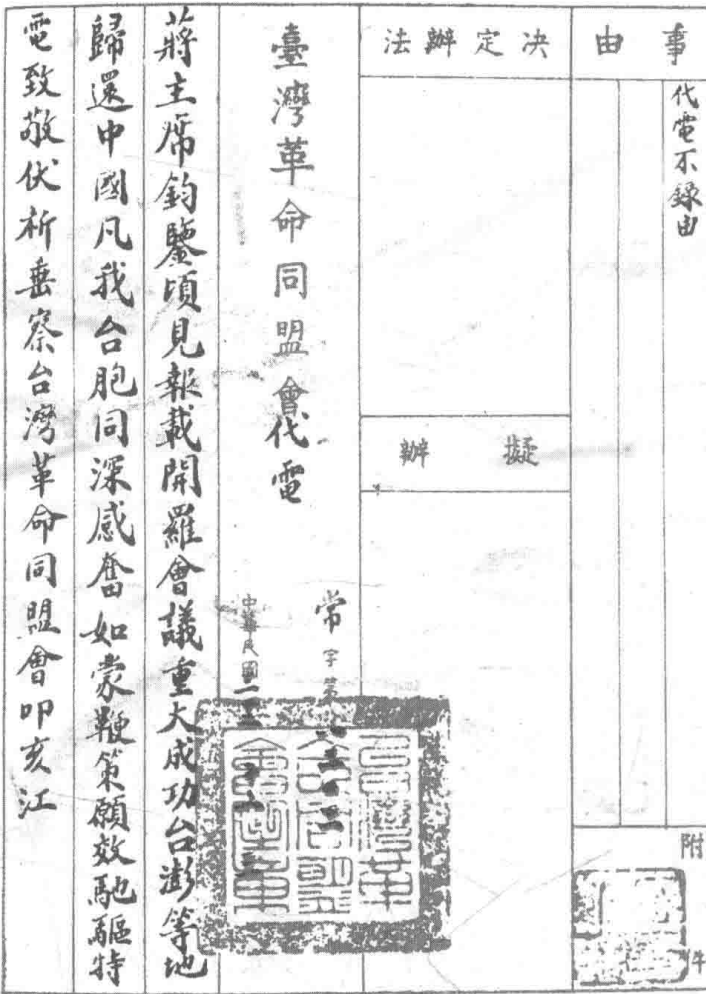 事由
代電不錄由
附件
決定辦法
擬辦
臺灣革命同盟會代電
常字第
中華民國
蔣主席鈞鑒頃見報載開羅會議重大成功台澎等地
歸還中國凡我台胞同深感奮如蒙鞭策願效馳驅特
電致敬伏祈垂察台灣革命同盟會叩亥江